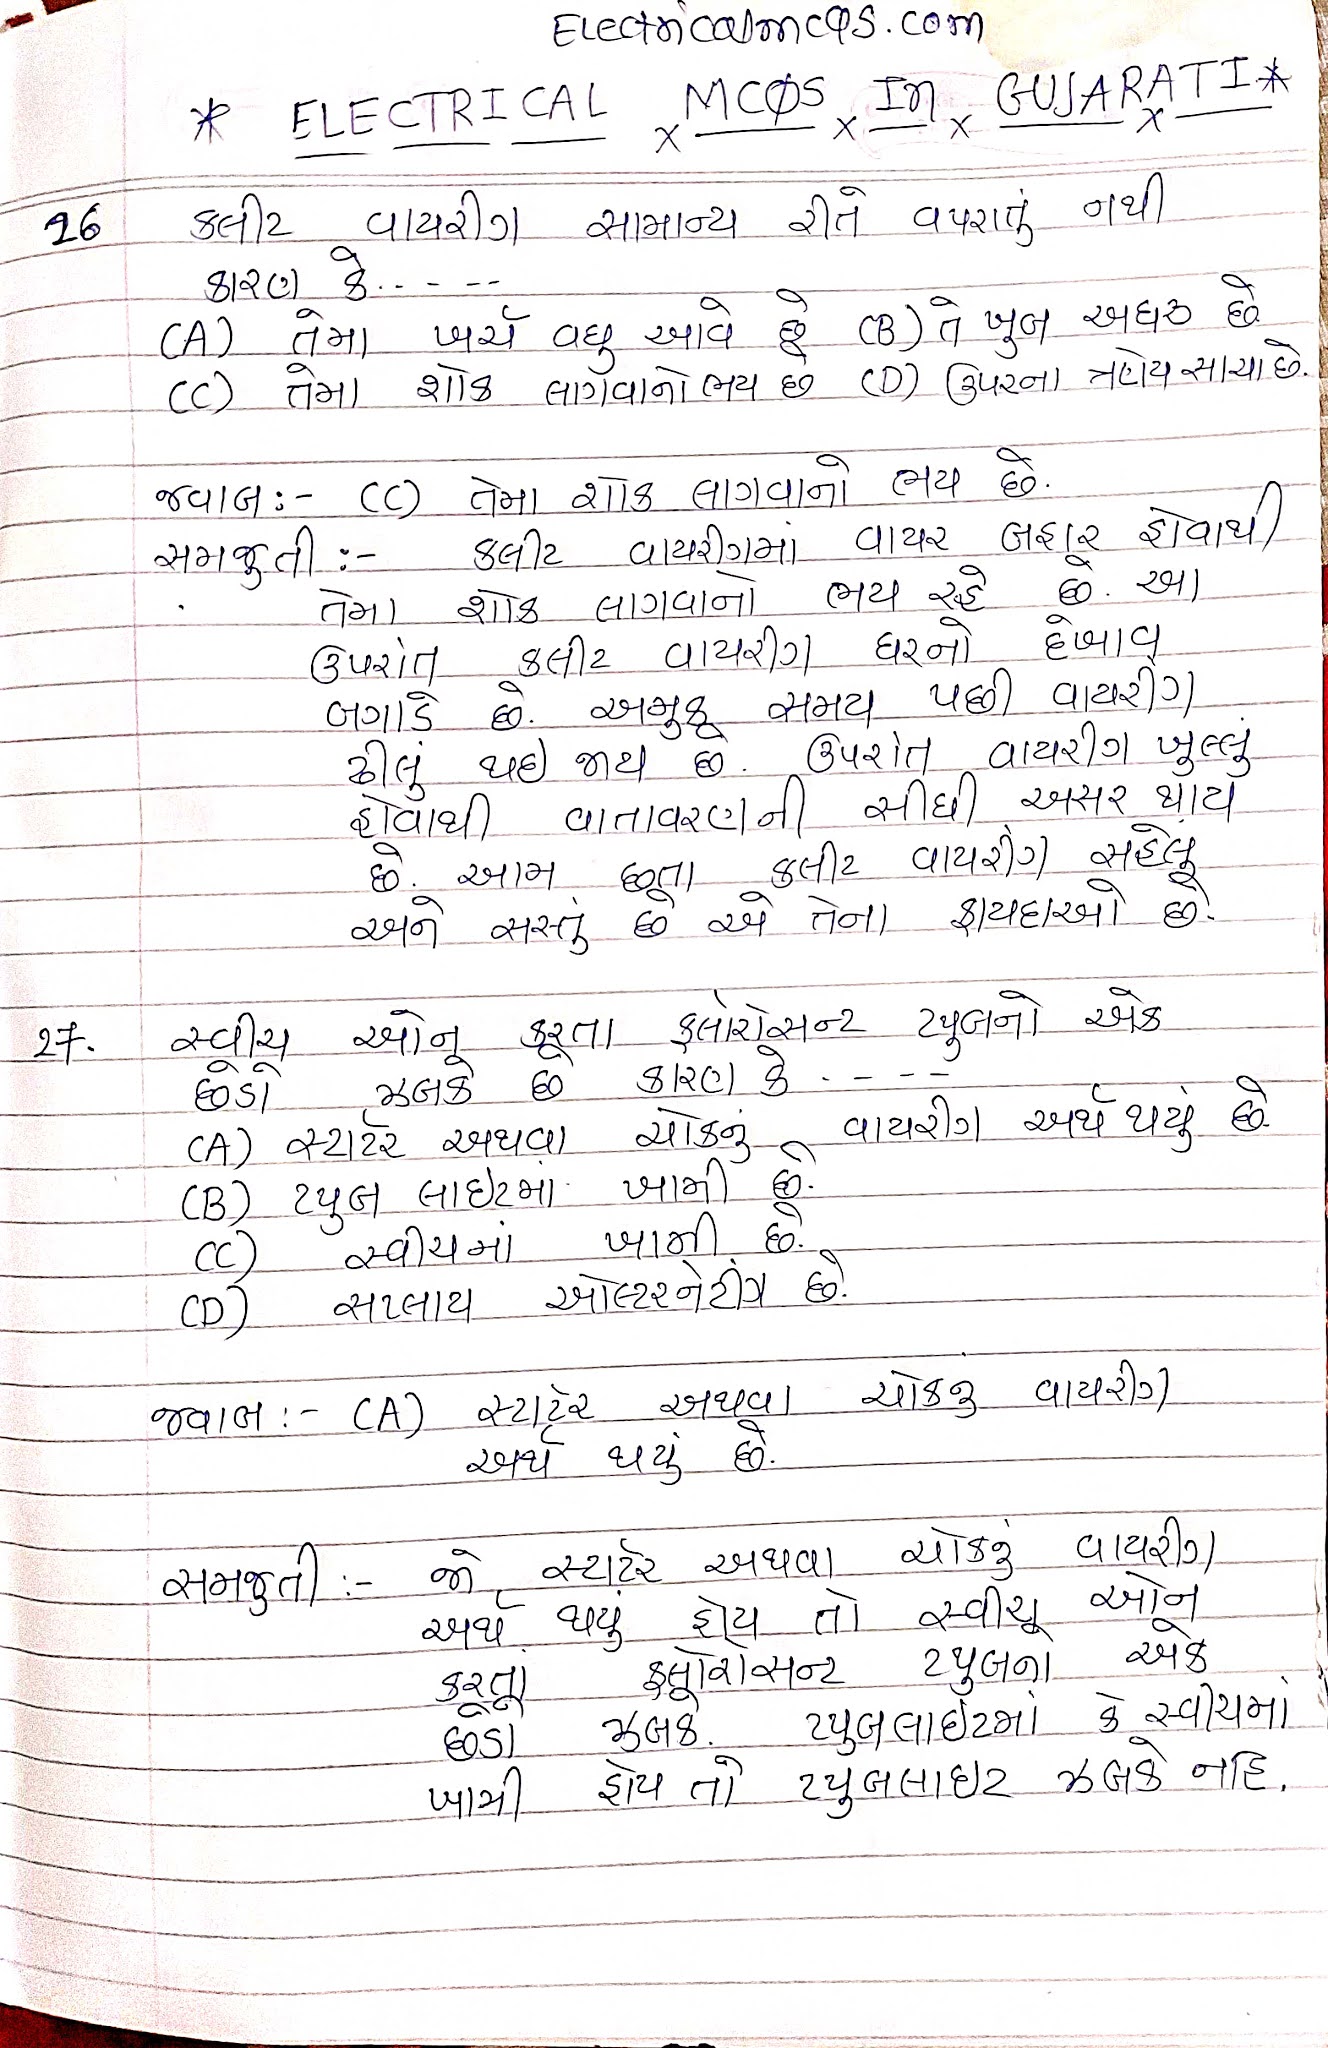 Electricalmcqs.com
* ELECTRICAL x MCQS x In x GUJARATI *
26 કલીટ વાયરીંગ સામાન્ય રીતે વપરાતું નથી
કારણ કે.-----
(A) તેમા ખર્ચ વધુ આવે છે (B) તે ખુબ અઘરુ છે
(C) તેમા શોક લાગવાનો ભય છે (D) ઉપરના ત્રણેય સાચા છે.
જવાબ:- (C) તેમા શોક લાગવાનો ભય છે.
સમજુતી:- કલીટ વાયરીંગમાં વાયર બહાર હોવાથી
તેમા શોક લાગવાનો ભય રહે છે. આ
ઉપરાંત કલીટ વાયરીંગ ઘરનો દેખાવ
બગાડે છે. અમુક સમય પછી વાયરીંગ
ઢીલું થઇ જાય છે. ઉપરાંત વાયરીંગ ખુલ્લું
હોવાથી વાતાવરણની સીધી અસર થાય
છે. આમ છતા કલીટ વાયરીંગ સહેલુ
અને સસ્તું છે એ તેના ફાયદાઓ છે.
27. સ્વીચ ઓન કરતા ફ્લોરોસન્ટ ટ્યુબનો એક
છેડો ઝબકે છે કારણ કે.----
(A) સ્ટાર્ટર અથવા ચોકનું વાયરીંગ અર્થ થયું છે
(B) ટ્યુબ લાઇટમાં ખામી છે.
(C) સ્વીચમાં ખામી છે.
(D) સપ્લાય ઓલ્ટરનેટીંગ છે.
જવાબ:- (A) સ્ટાર્ટર અથવા ચોકનું વાયરીંગ
અર્થ થયું છે.
સમજુતી:- જો સ્ટાર્ટર અથવા ચોકનું વાયરીંગ
અર્થ થયું હોય તો સ્વીચ ઓન
કરતાં ફ્લોરોસન્ટ ટ્યુબનો એક
છેડો ઝબકે. ટ્યુબલાઇટમાં કે સ્વીચમાં
ખામી હોય તો ટ્યુબલાઇટ ઝબકે નહિ.